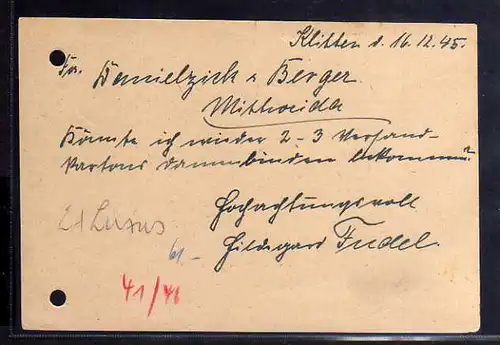 Klitten d. 16.12.45.
Fa. Danielzick & Berger
Mittweida
Könnte ich wieder 2-3 Versand-
kartons Damenbinden bekommen?
Hochachtungsvoll
Hildegard Fudel.
21 Luxus
61.-
41/46